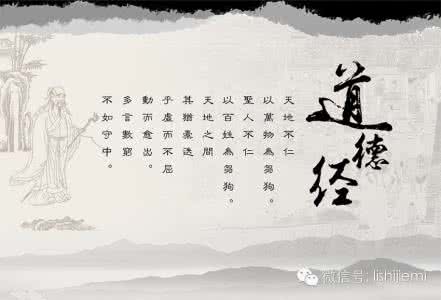 道德经
天地不仁
以萬物為芻狗。
聖人不仁
以百姓為芻狗。
天地之間
其猶橐迭
乎虛而不屈
動而愈出。
多言數窮
不如守中。
微信号: lishijiemi